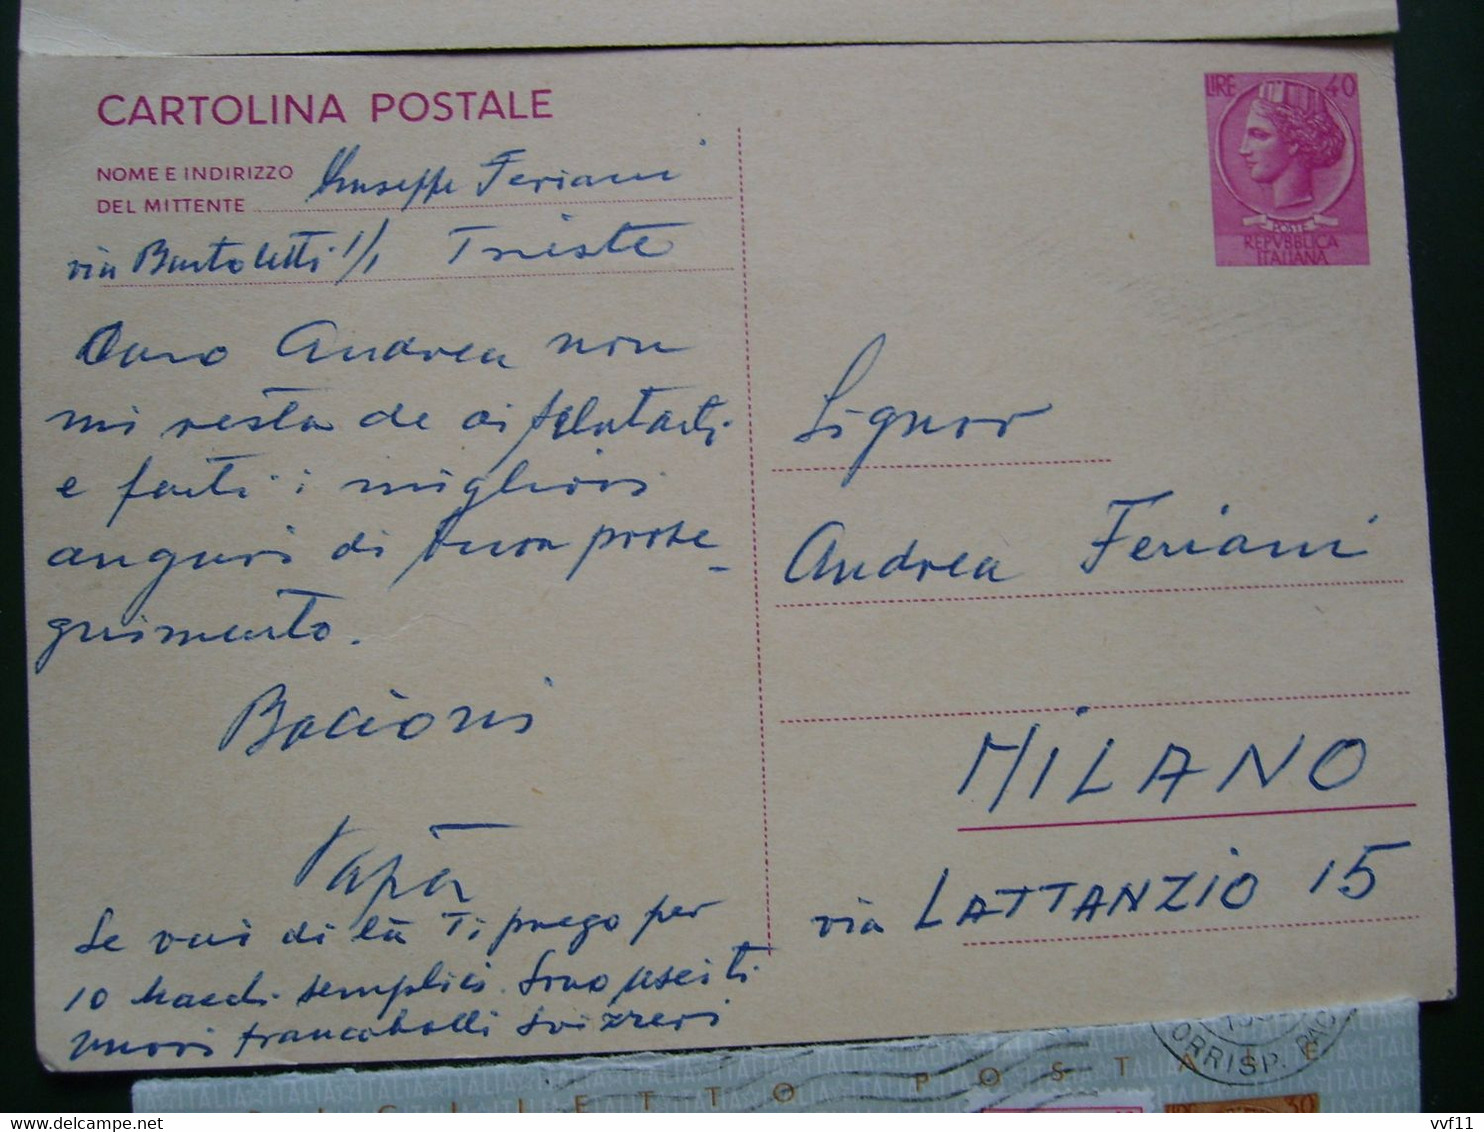 CARTOLINA POSTALE
NOME E INDIRIZZO
DEL MITTENTE
Giuseppe Feriani
via Bartoletti 1/1 Trieste
Caro Andrea non
mi resta che salutarti
e farti i migliori
auguri di buon prose-
guimento.
Bacioni
Papà
Se vai di là Ti prego per
10 Maedi semplici. Sono usciti
nuovi francobolli svizzeri
LIRE 40
POSTE
REPVBBLICA
ITALIANA
Signor
Andrea Feriani
MILANO
via LATTANZIO 15
BIGLIETTO POSTALE
ORRISP. PA
30
vvf11